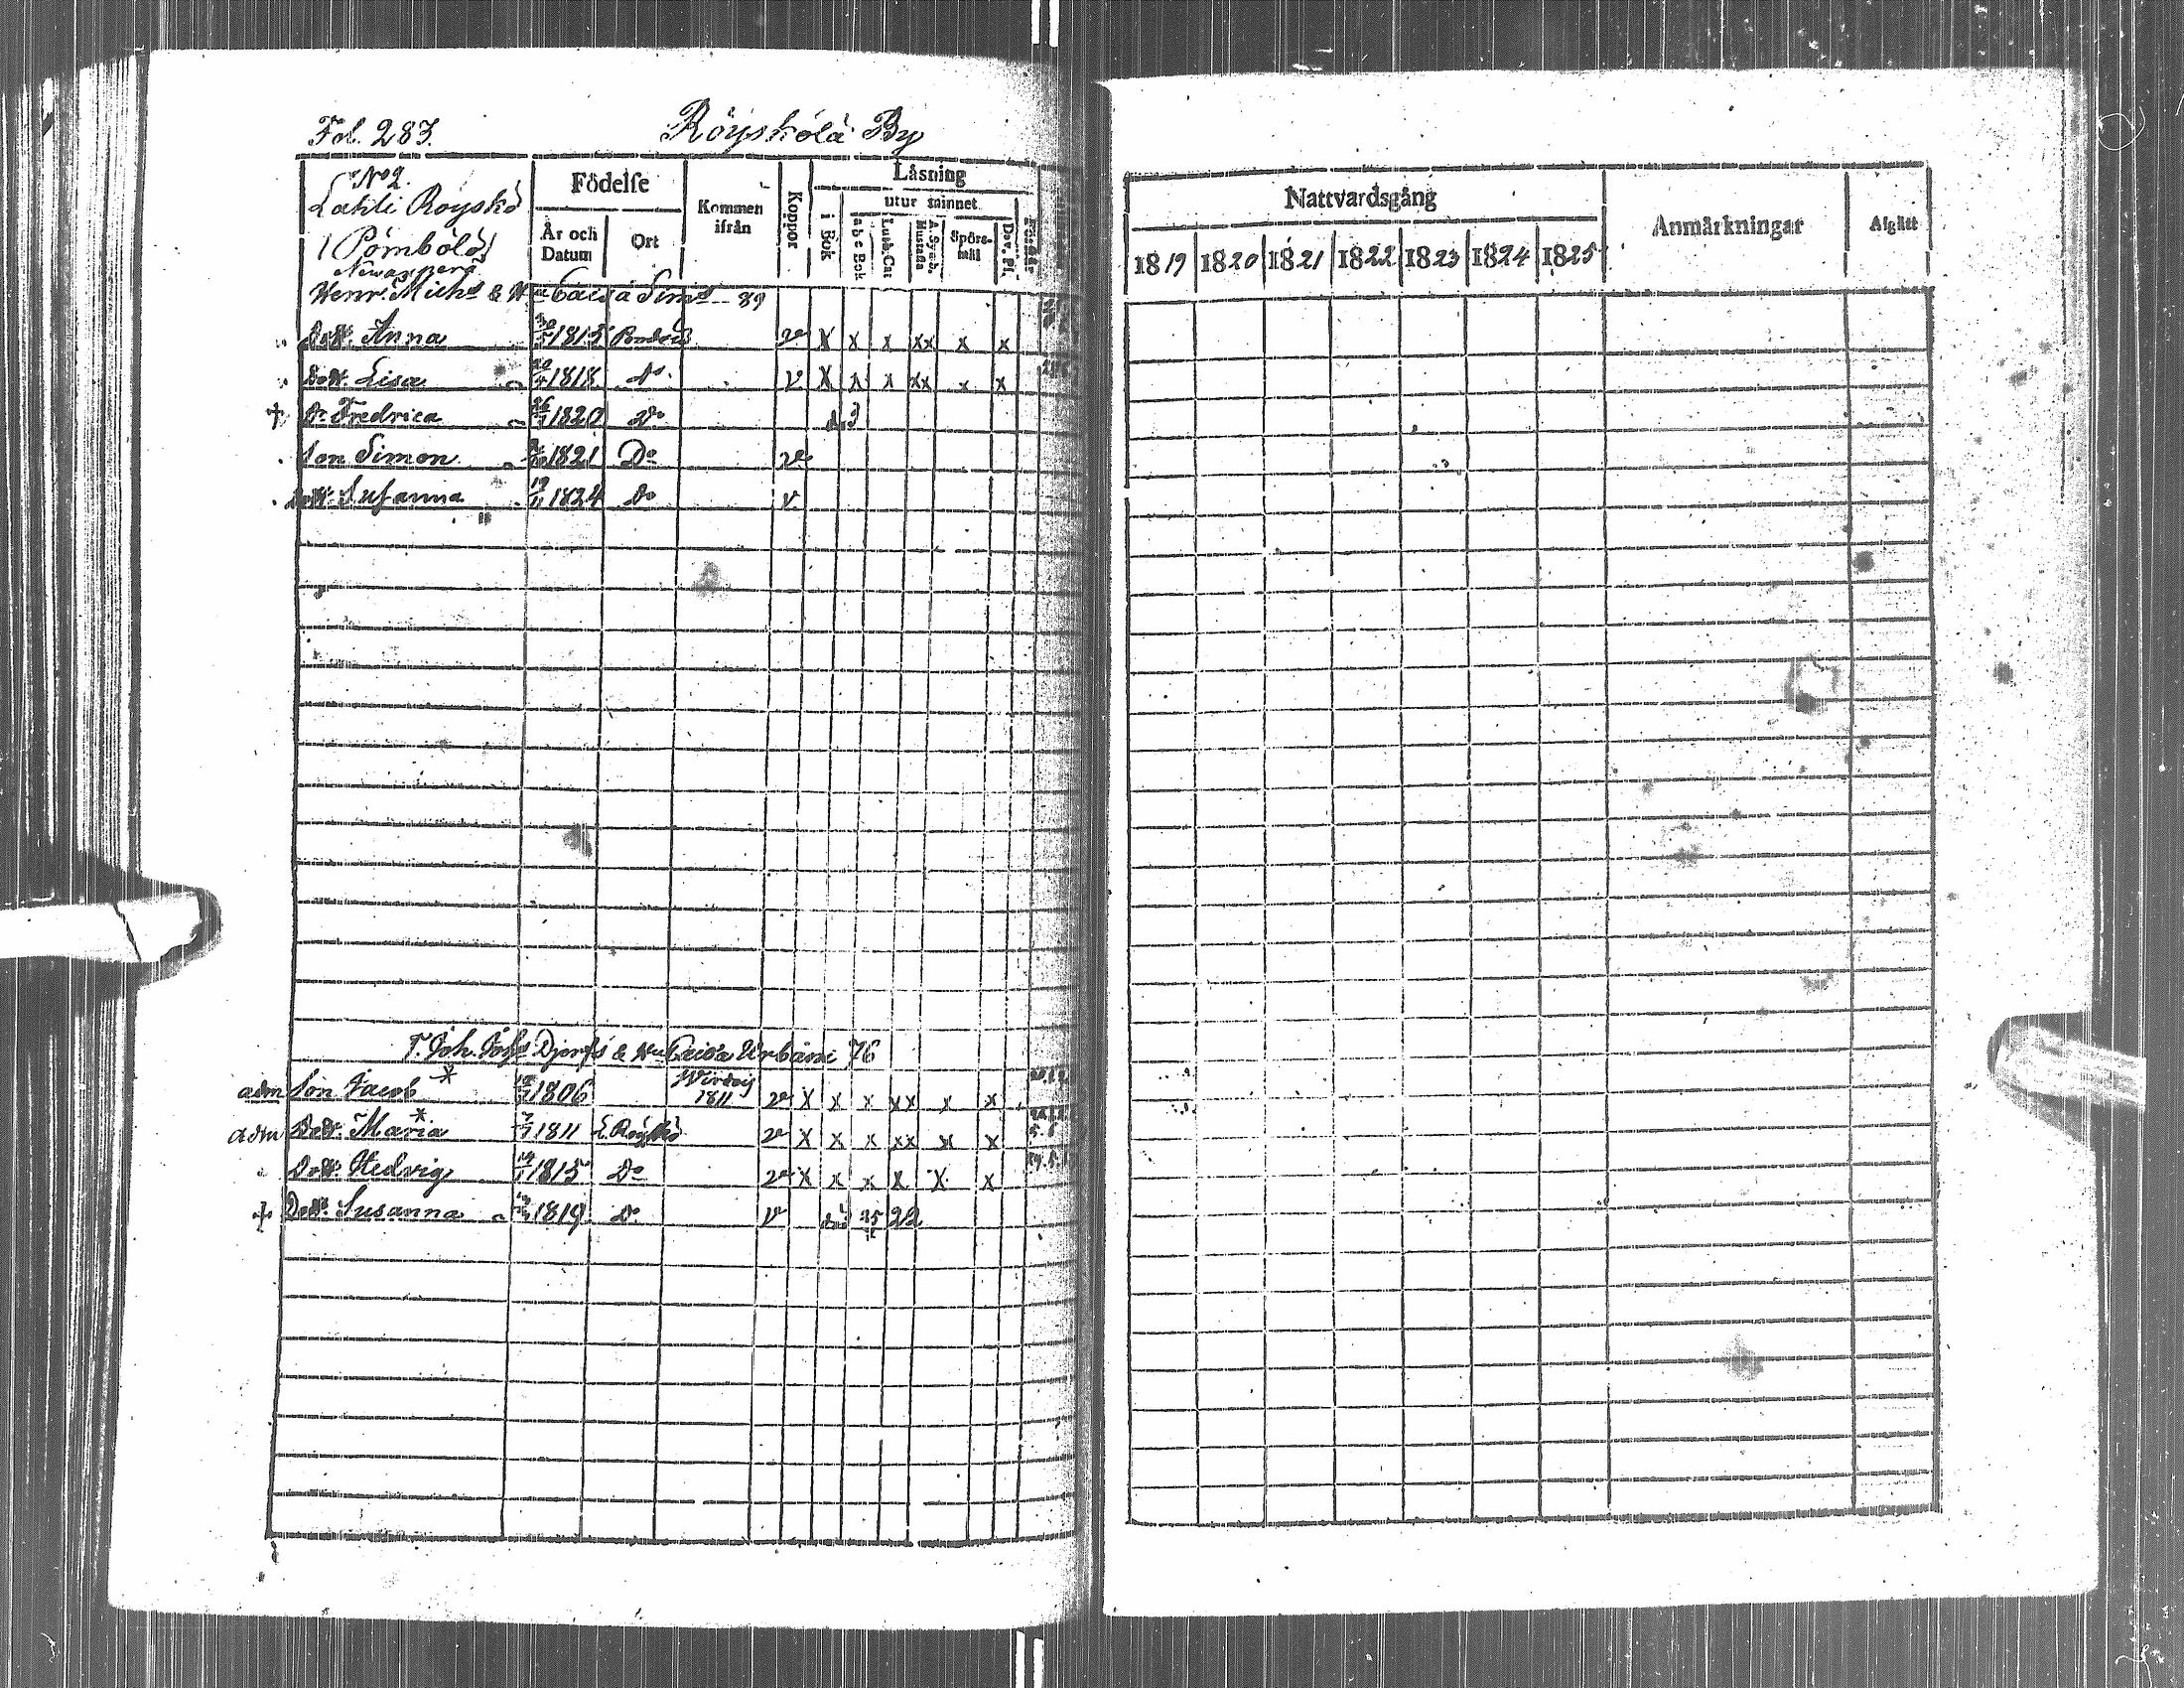 Fol. 283. Röyskölä By
No 2.
Lahti Röyskö
(Pömbölä)
Födelse
År och Datum
Ort
Kommen ifrån
Koppor
Läsning
i Bok
utur minnet
a b c Bok
Luth. Cat
A. Symb. Hustafla
Spörsmål
Dav. Ps.
Henr. Michs & H Caisa Sims 89
Dottr. Anna 1815 v x x x xx x x
Dottr. Lisa 1818 Do v x x x xx x x
+ Dr Fredrica 26 1820 Do d. 3
Son Simon 1821 Do v
Dottr. Susanna 19/11 1824 Do v
T. Joh. Johs & Hu Caisa Urbani 76
adm Son Jacob * 1806 1811 v x x x xx x x
adm Dottr. Maria * 1811 L. Röyskö v x x x xx x x
Dottr. Hedvig 1815 Do v x x x x x x
+ Dottr. Susanna 1819 Do v d. 25 22
Nattvardsgång
1819 1820 1821 1822 1823 1824 1825
Anmärkningar
Afgått